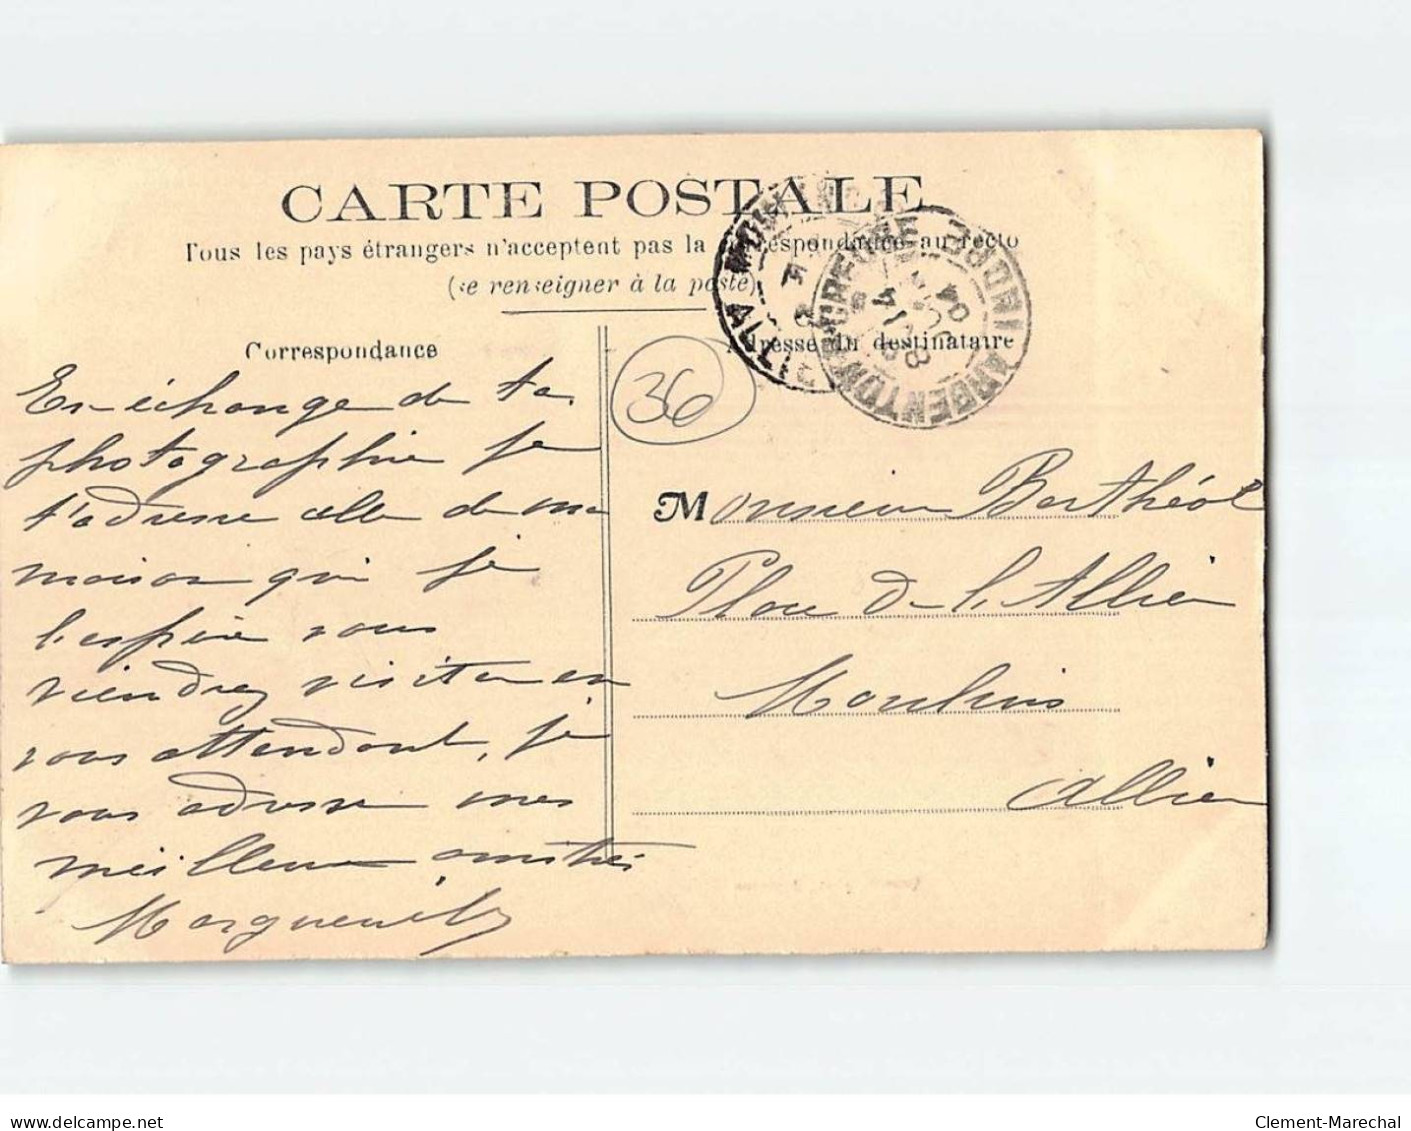 CARTE POSTALE
Tous les pays étrangers n'acceptent pas la correspondance au recto
(se renseigner à la poste)
Correspondance
Adresse du destinataire
36
En échange de ta
photographie je
t'adresse celle de ma
maison que je
l'espère vous
viendrez visiter en
vous attendant, je
vous adresse mes
meilleures amitiés
Marguerite
Monsieur Berthéol
Place de l'Allier
Moulins
Allier
MOULINS
ALLIER
ARGENTON S CREUSE INDRE
04
delcampe.net
Clement-Marechal